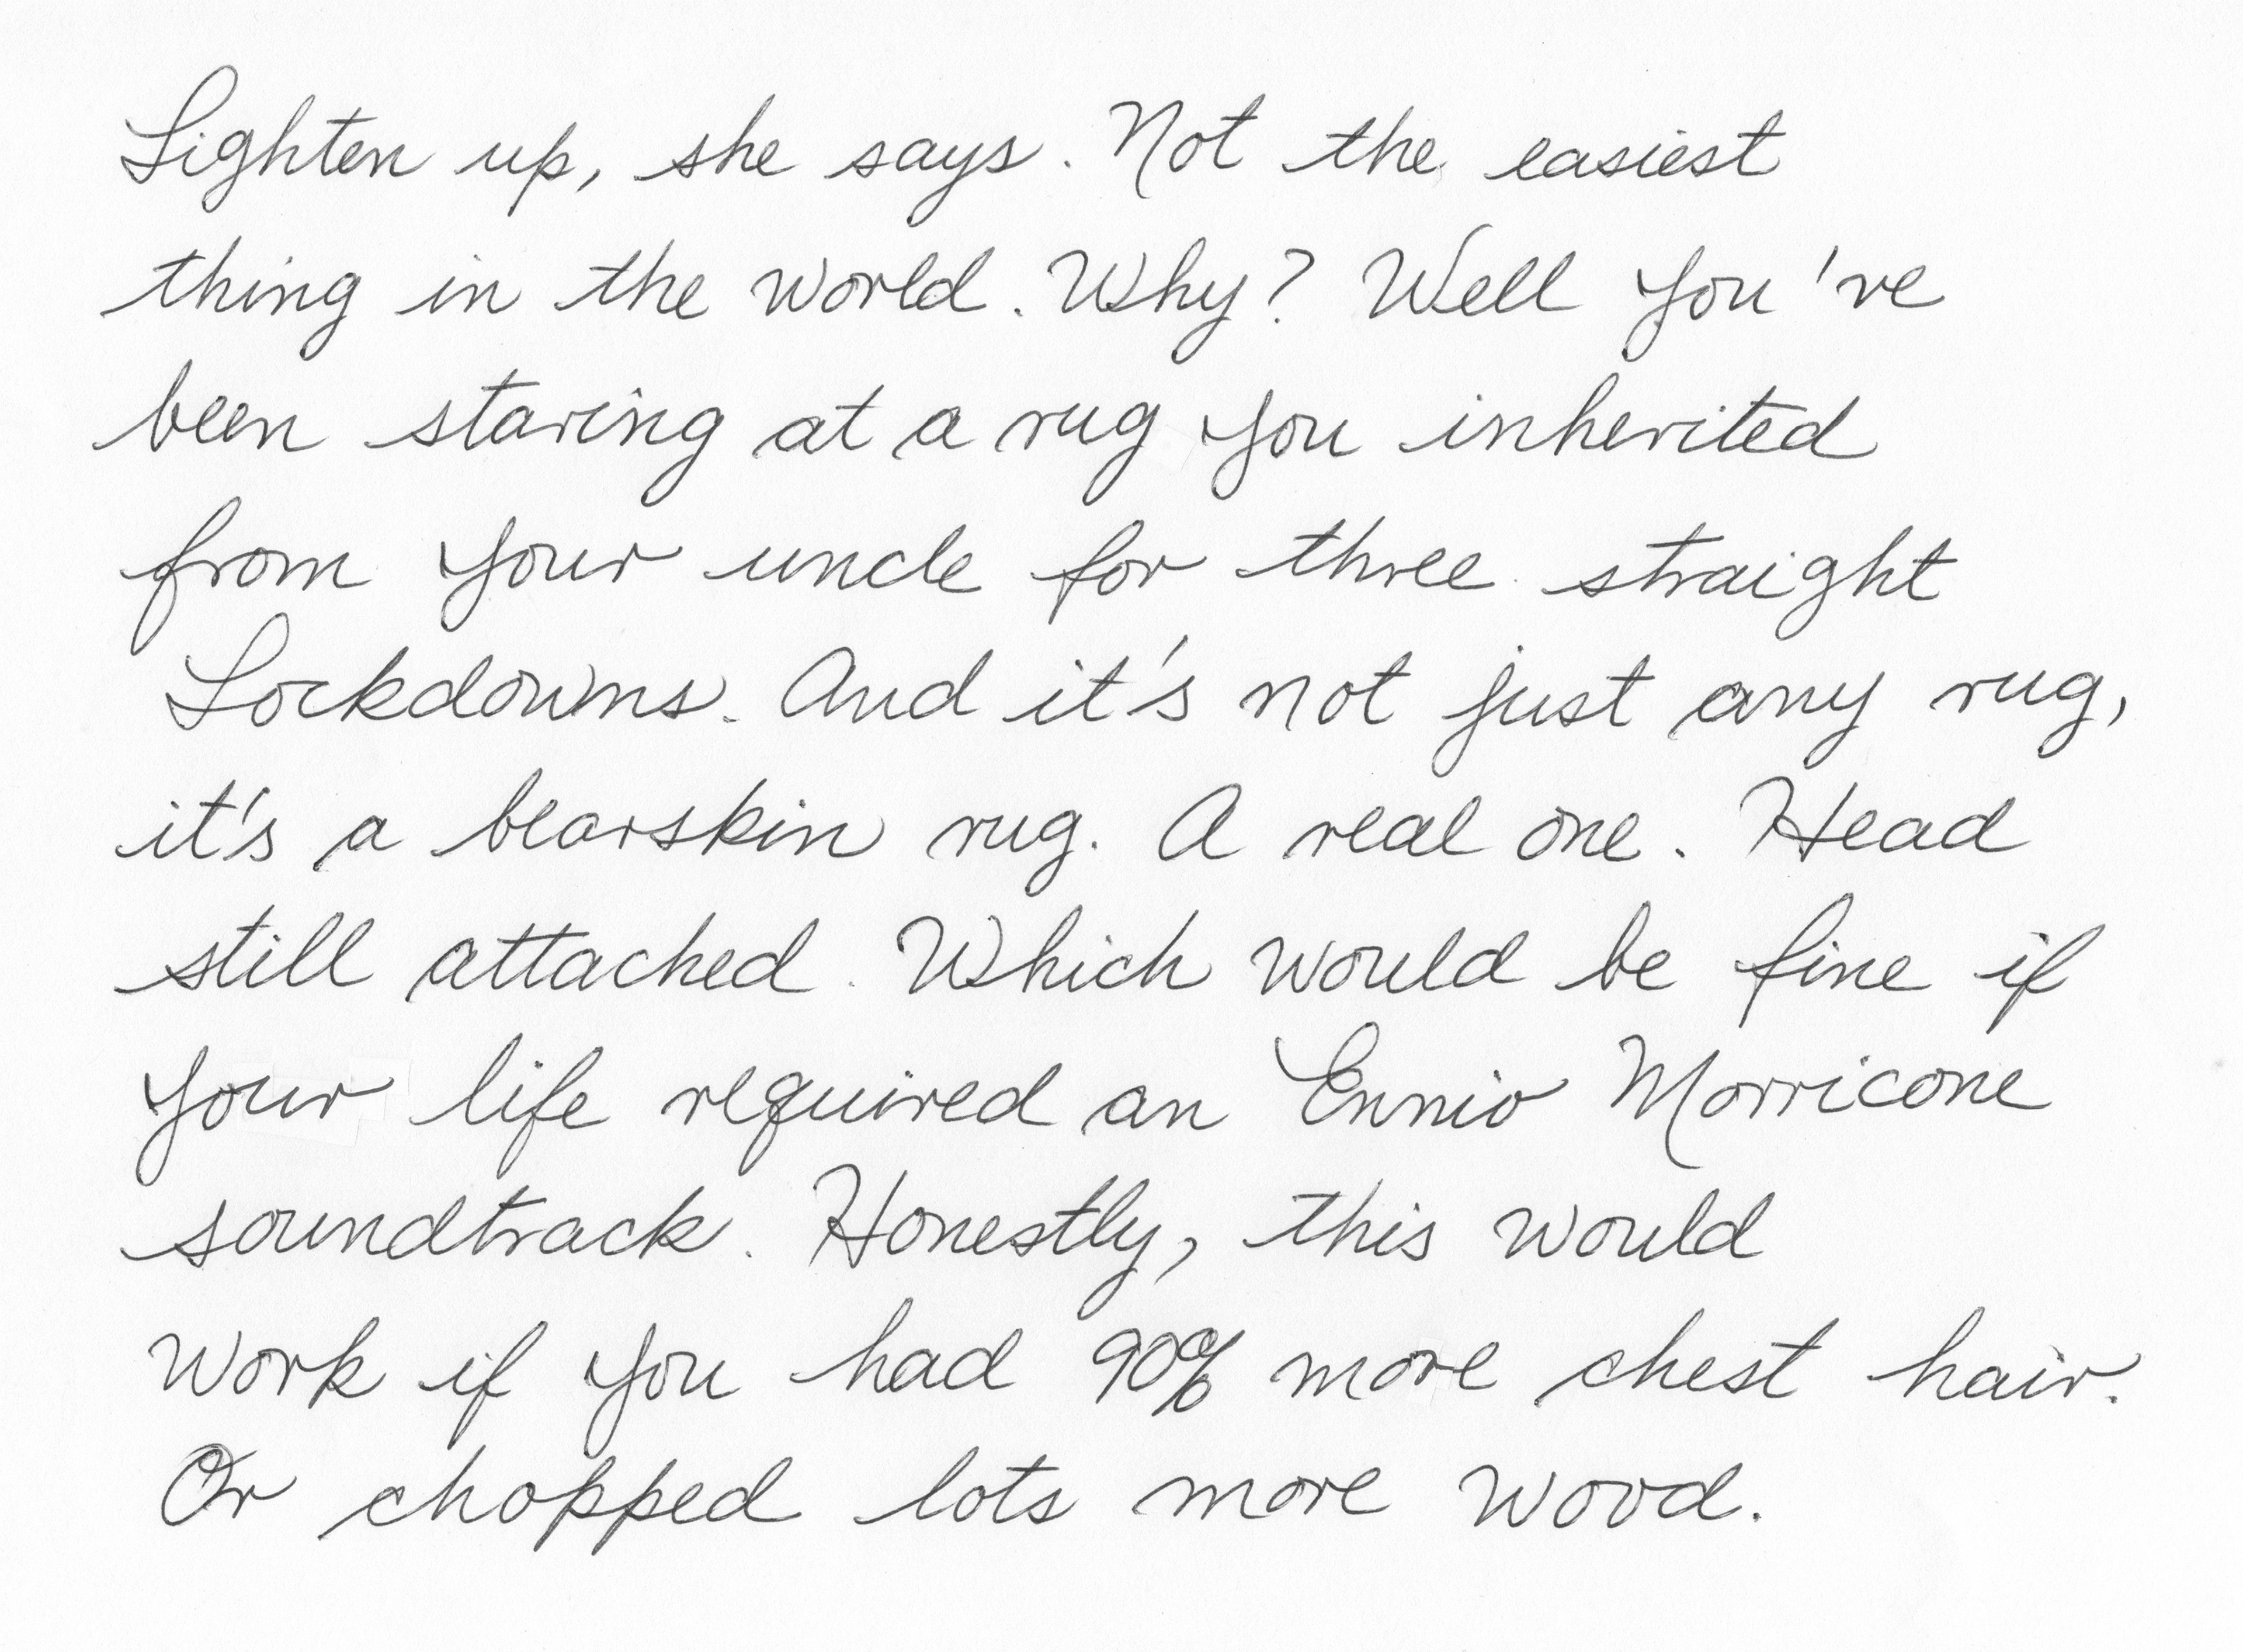 Lighten up, she says. Not the easiest
thing in the world. Why? Well you've
been staring at a rug you inherited
from your uncle for three straight
Lockdowns. And it's not just any rug,
it's a bearskin rug. A real one. Head
still attached. Which would be fine if
your life required an Ennio Morricone
soundtrack. Honestly, this would
work if you had 90% more chest hair.
Or chopped lots more wood.